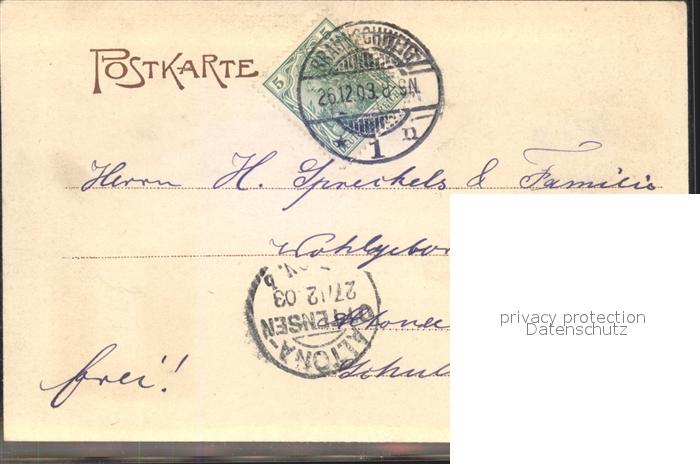 POSTKARTE
5 5
BRAUNSCHWEIG
26.12.03. 8-9N.
* 1 n
Herrn H. Spreckels & Familie
Wohlgebor
ALTONA-
OTTENSEN
27/12.03
Altona
frei!
Schul
privacy protection
Datenschutz